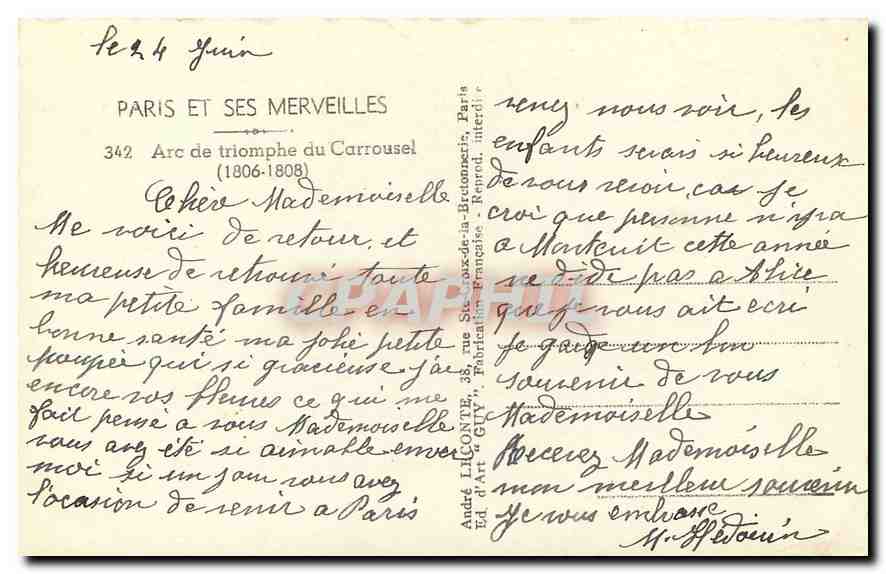 le 24 Juin
PARIS ET SES MERVEILLES
342 Arc de triomphe du Carrousel
(1806-1808)
Chère Mademoiselle
Me voici de retour, et
heureuse de retrouvé toute
ma petite famille en
bonne santé ma jolie petite
poupée qui si gracieuse j'ai
encore vos fleurs ce qui me
fait pensé a vous Mademoiselle
vous avez été si aimable enver
moi si un jour vous avez
l'ocasion de venir a Paris
André LECONTE, 38, rue Ste-Croix-de-la-Bretonnerie, Paris
Ed. d'Art "GUY", Fabrication Française - Reprod. interdite
venez nous voir, les
enfants serais si heureux
de vous revoir, car je
croi que personne n'ira
a cette année
ne dide pas a Alice
que je vous ait ecri
Je garde un bon
souvenir de vous
Mademoiselle
Recevez Mademoiselle
mon meilleur souvenir
Je vous embrasse
M. Hédouin
CPAPHIL